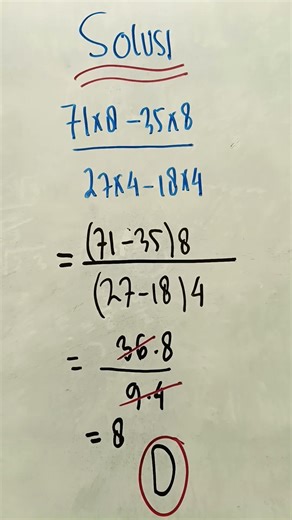 Solusi
71x8-35x8
27x4-18x4
= (71-35)8
(27-18)4
= 36.8
9.4
= 8
D